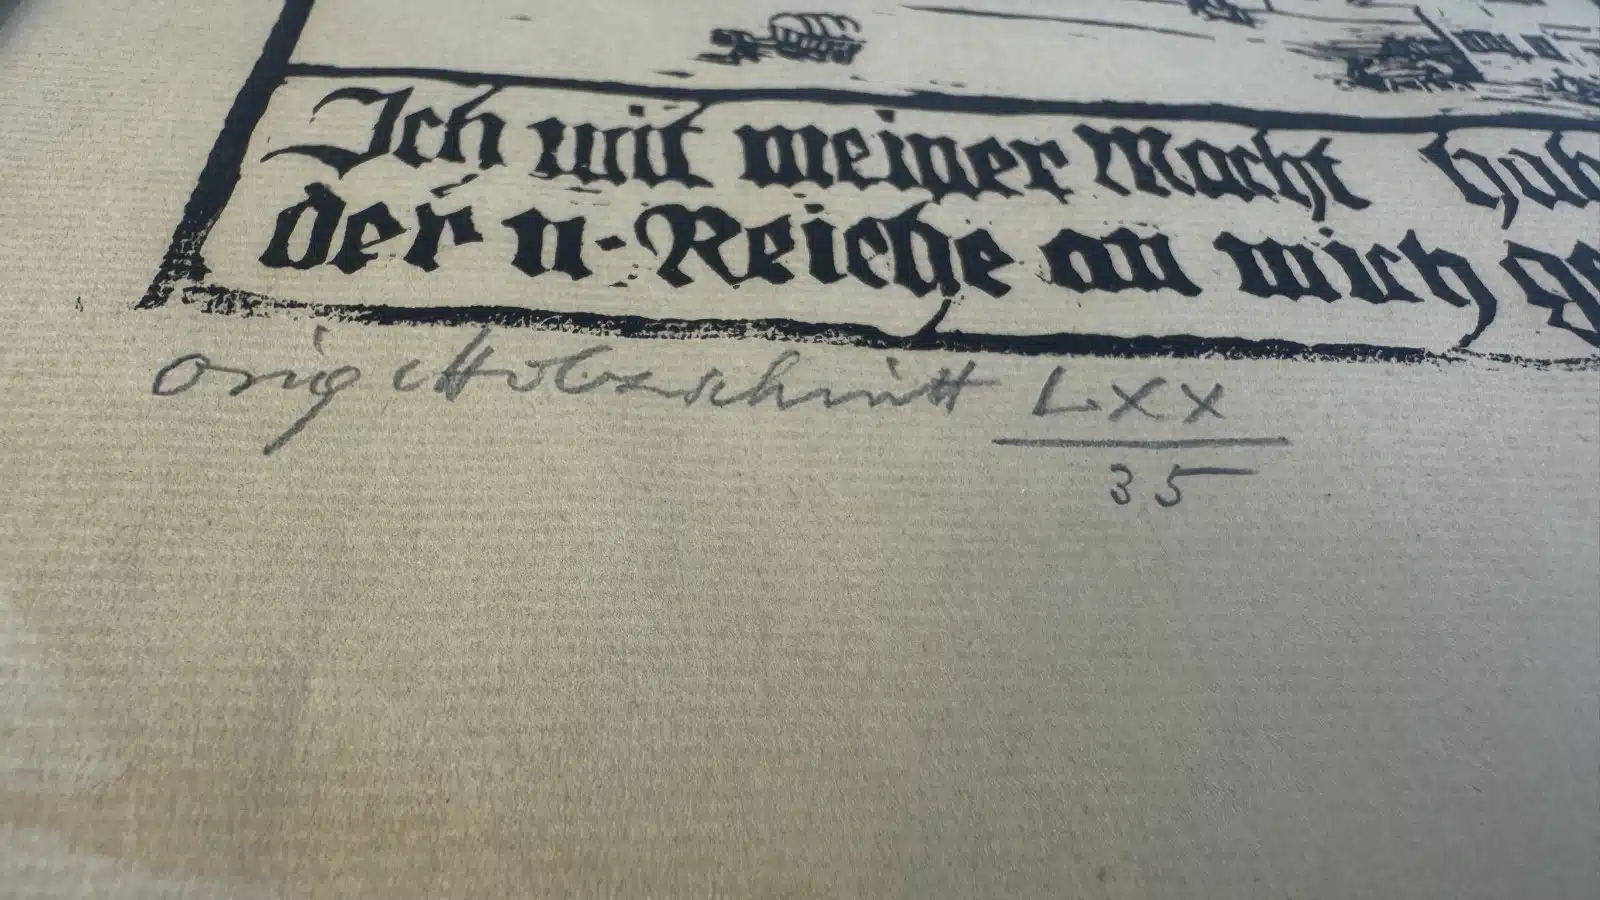 Ich mit meiner Macht hab
der n-Reiche an mich ge
Orig Holzschnitt LXX
35